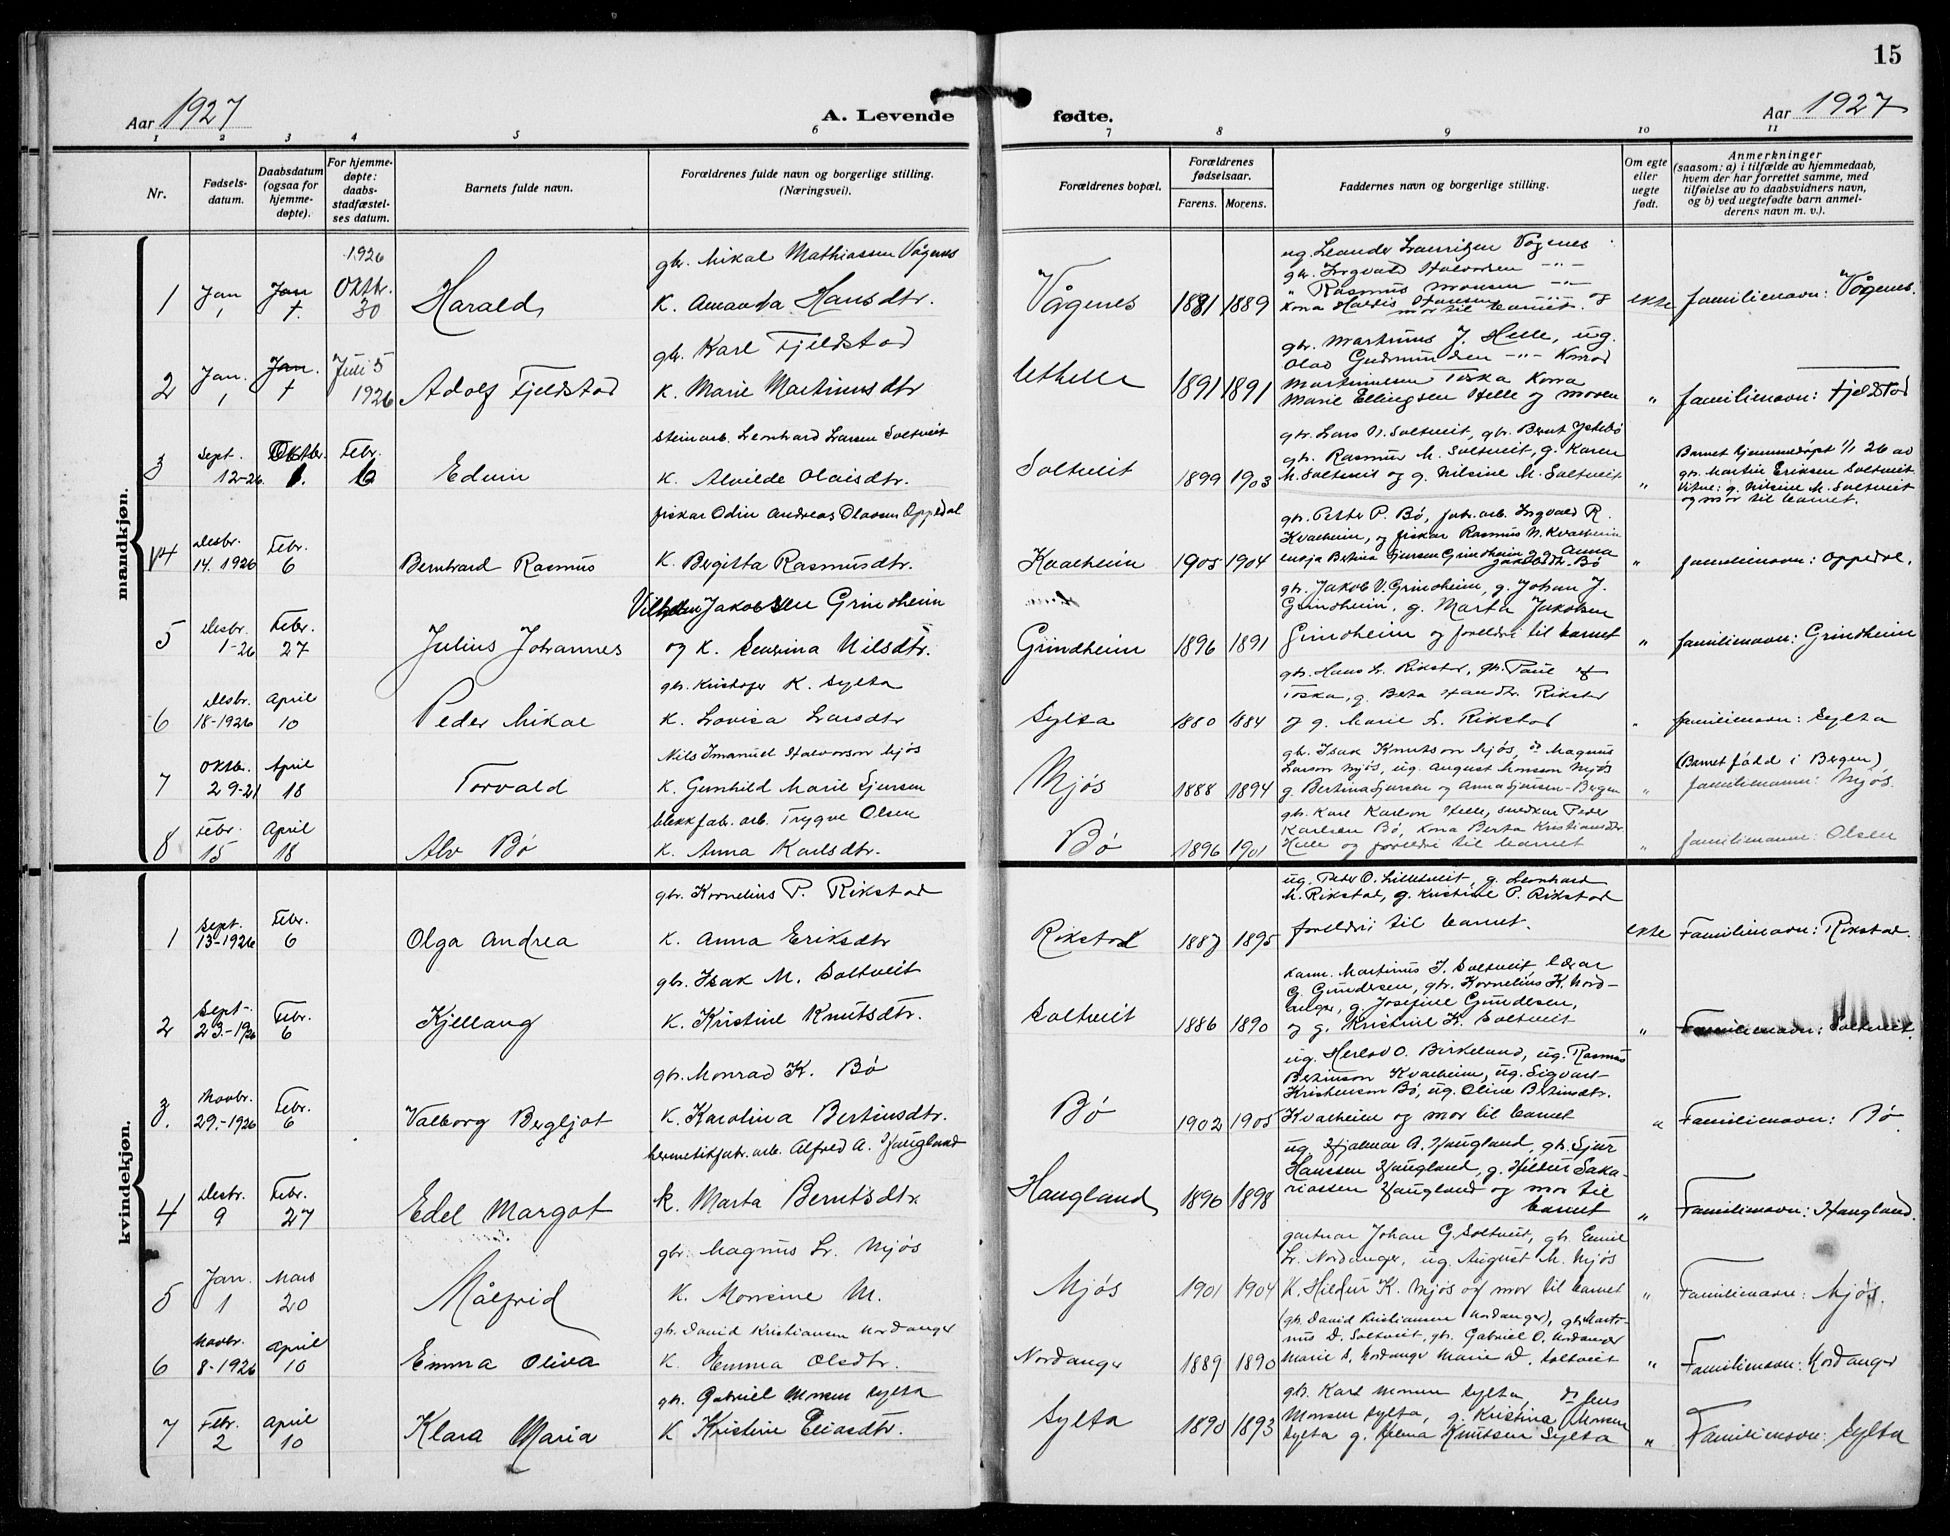 15
Aar 1927
A. Levende
fødte.
Aar 1927
1 2 3 4 5 6 7 8 9 10 11
Nr.
Fødsels-
datum.
Daabsdatum
(ogsaa for
hjemme-
døpte).
For hjemme-
døpte:
daabs-
stadfæstel-
ses datum.
Barnets fulde navn.
Forældrenes fulde navn og borgerlige stilling.
(Næringsvei).
Forældrenes bopæl.
Forældrenes
fødselsaar.
Farens. Morens.
Faddernes navn og borgerlige stilling.
Om egte
eller
uegte
født.
Anmerkninger
(saasom: a) i tilfælde av hjemmedaab,
hvem der har forrettet samme, med
tilføielse av to daabsvidners navn,
og b) ved uegtefødte barn anmel-
derens navn m. v.).
mandkjøn.
1
Jan
1
Jan
1926
Oktbr.
30
Harald
gbr. Mikal Mathiassen Vågenes
K. Amanda Hansdtr.
Vågenes
1881 1889
ug. Leander Lauritzen Vågenes
gbr. Ingvald Halvorsen -"-
" Rasmus Monsen -"-
mor til barnet
ekte
familienavn: Vågenes.
2
Jan.
1
Jan.
Juli 5
1926
Adolf Fjeldstad
gbr. Karl Fjeldstad
K. Marie Martinusdtr
Uthelle
1891 1891
gbr. Martinus J. Helle, ug.
Olav Gudmundsen -"- Konrad
Martinussen Toska Kona
Marie Ellingsen Helle og moren
"
familienavn: Fjeldstad
3
Sept.
12-26
Oktbr.
1.
Febr.
6
Edvin
steinarb. Leonhard Larsen Soltveit
K. Alvilde Olaisdtr.
Soltveit
1899 1903
gbr. Lars N. Soltveit, gbr. Bernt
gbr. Rasmus M. Soltveit, g. Karen
M. Soltveit og g. Nilsine M. Soltveit
"
Barnet hjemmedöpt 1/1 26 av
gbr. Martin Eriksen Soltveit
Vitne: g. Nilsine M. Soltveit
og mor til barnet.
4
Desbr.
14. 1926
Febr.
6
Bernhard Rasmus
fiskar Odin Andreas Olavsen Oppedal
K. Bergitta Rasmusdtr.
Kvalheim
1905 1904
gbr. Petter P. Bø, fabr. arb. Ingvald R.
Kvalheim, og fiskar Rasmus N. Kvalheim
enkja Bertina Sjursen Grindheim og g. Anna
Jakobsdtr. Bø
"
familienavn: Oppedal.
5
Desbr.
1-26
Febr.
27
Julius Johannes
Vilhelm Jakobsen Grindheim
og K. Severina Nilsdtr.
Grindheim
1896 1891
gbr. Jakob V. Grindheim, g. Johan J.
Grindheim, g. Marta Jakobsen
Grindheim og foreldri til barnet
"
familienavn: Grindheim
6
Desbr.
18-1926
April
10
Peder Mikal
gbr. Kristofer K. Sylta
K. Lovisa Larsdtr
Sylta
1880 1884
gbr. Hans L. Rikstad, gbr. Paul
Toska, g. Berta Hansdtr Rikstad
og g. Marie L. Rikstad
"
familienavn: Sylta
7
Oktbr.
29-21
April
18
Torvald
Nils Imanuel Halvorsen Mjøs
K. Gunhild Marie Sjursen
Mjøs
1888 1894
gbr. Isak Knutson Mjøs, do Magnus
Larson Mjøs, ug. August Monsson Mjøs
g. Bertina Sjursen og Anna Sjursen - Bergen
"
(Barnet född i Bergen)
familienamn: Mjøs.
8
Febr.
15
April
18
Alv Bø
blekkfab. arb. Trygve Olsen
K. Anna Karlsdtr.
Bø
1896 1901
gbr. Karl Karlson Helle, snedkar Peder
Karlsen Bø, kona Berta Kristiansdtr
Helle og foreldri til barnet
"
familienamn: Olsen
kvindekjøn.
1
Sept.
13-1926
Febr.
6
Olga Andrea
gbr. Kornelius P. Rikstad
K. Anna Eriksdtr
Rikstad
1887 1895
ug. Peder O. Litletveit, g. Leonhard
M. Rikstad, g. Kristine P. Rikstad
foreldri til barnet.
ekte
Familienavn: Rikstad.
2
Sept-
23.-1926
Febr.
6
Kjellaug
gbr. Isak M. Soltveit
K. Kristine Knutsdtr.
Soltveit
1886 1890
Martinus I. Soltveit lærar
G. Gundersen, gbr. Kornelius K. Nord-
anger, g. Josefine Gundersen,
og g. Kristine K. Soltveit
"
Familienavn: Soltveit.
3.
Novbr.
29.-1926
Febr.
6
Valborg Bergljot
gbr. Monrad K. Bø
K. Karolina Bertinsdtr.
Bø
1902 1905
ug. Herlov O. Birkeland, ug. Rasmus
Bertinson Kvalheim, ug. Sigvart
Kristenson Bø, ug. Oline Bertinsdtr.
Kvalheim og mor til barnet
"
Familienavn: Bø
4
Desbr.
9
Febr.
27
Edel Margot
hermetikfabr. arb. Alfred A. Haugland
K. Marta Berntsdtr.
Haugland
1890 1898
ug. Hjalmar A. Haugland, gbr. Sjur
Hanssen Haugland, g. Hildur Saka-
riassen Haugland og mor til
barnet
"
Familienavn: Haugland.
5
Jan.
1
Mars
20
Målfrid
gbr. Magnus L. Mjøs
K. Monsine M.
Mjøs
1901 1904
gartnar Johan G. Soltveit, gbr. Emil
L. Nordanger, ug. August M. Mjøs
K. Hildur K. Mjøs og mor til barnet
"
Familienavn: Mjøs.
6
Novbr.
8-1926
April
10
Emma Oliva
gbr. David Kristiansen Nordanger
K. Emma Olsdtr.
Nordanger
1889 1890
(gbr. David Kristiansen Nordanger), gbr. Marti-
nus D. Soltveit, gbr. Gabriel O. Nordanger
Marie S. Nordanger Marie D. Soltveit
"
Familienavn: Nordanger
7
Febr.
2
April
10
Klara Maria
gbr. Gabriel Monsen Sylta
K Kristine Eliasdtr.
Sylta
1890 1893
gbr. Karl Monsen Sylta, do Jens
Monsen Sylta, g. Kristina Monsen
Sylta g. Selma Knutsen Sylta
"
Familienavn: Sylta